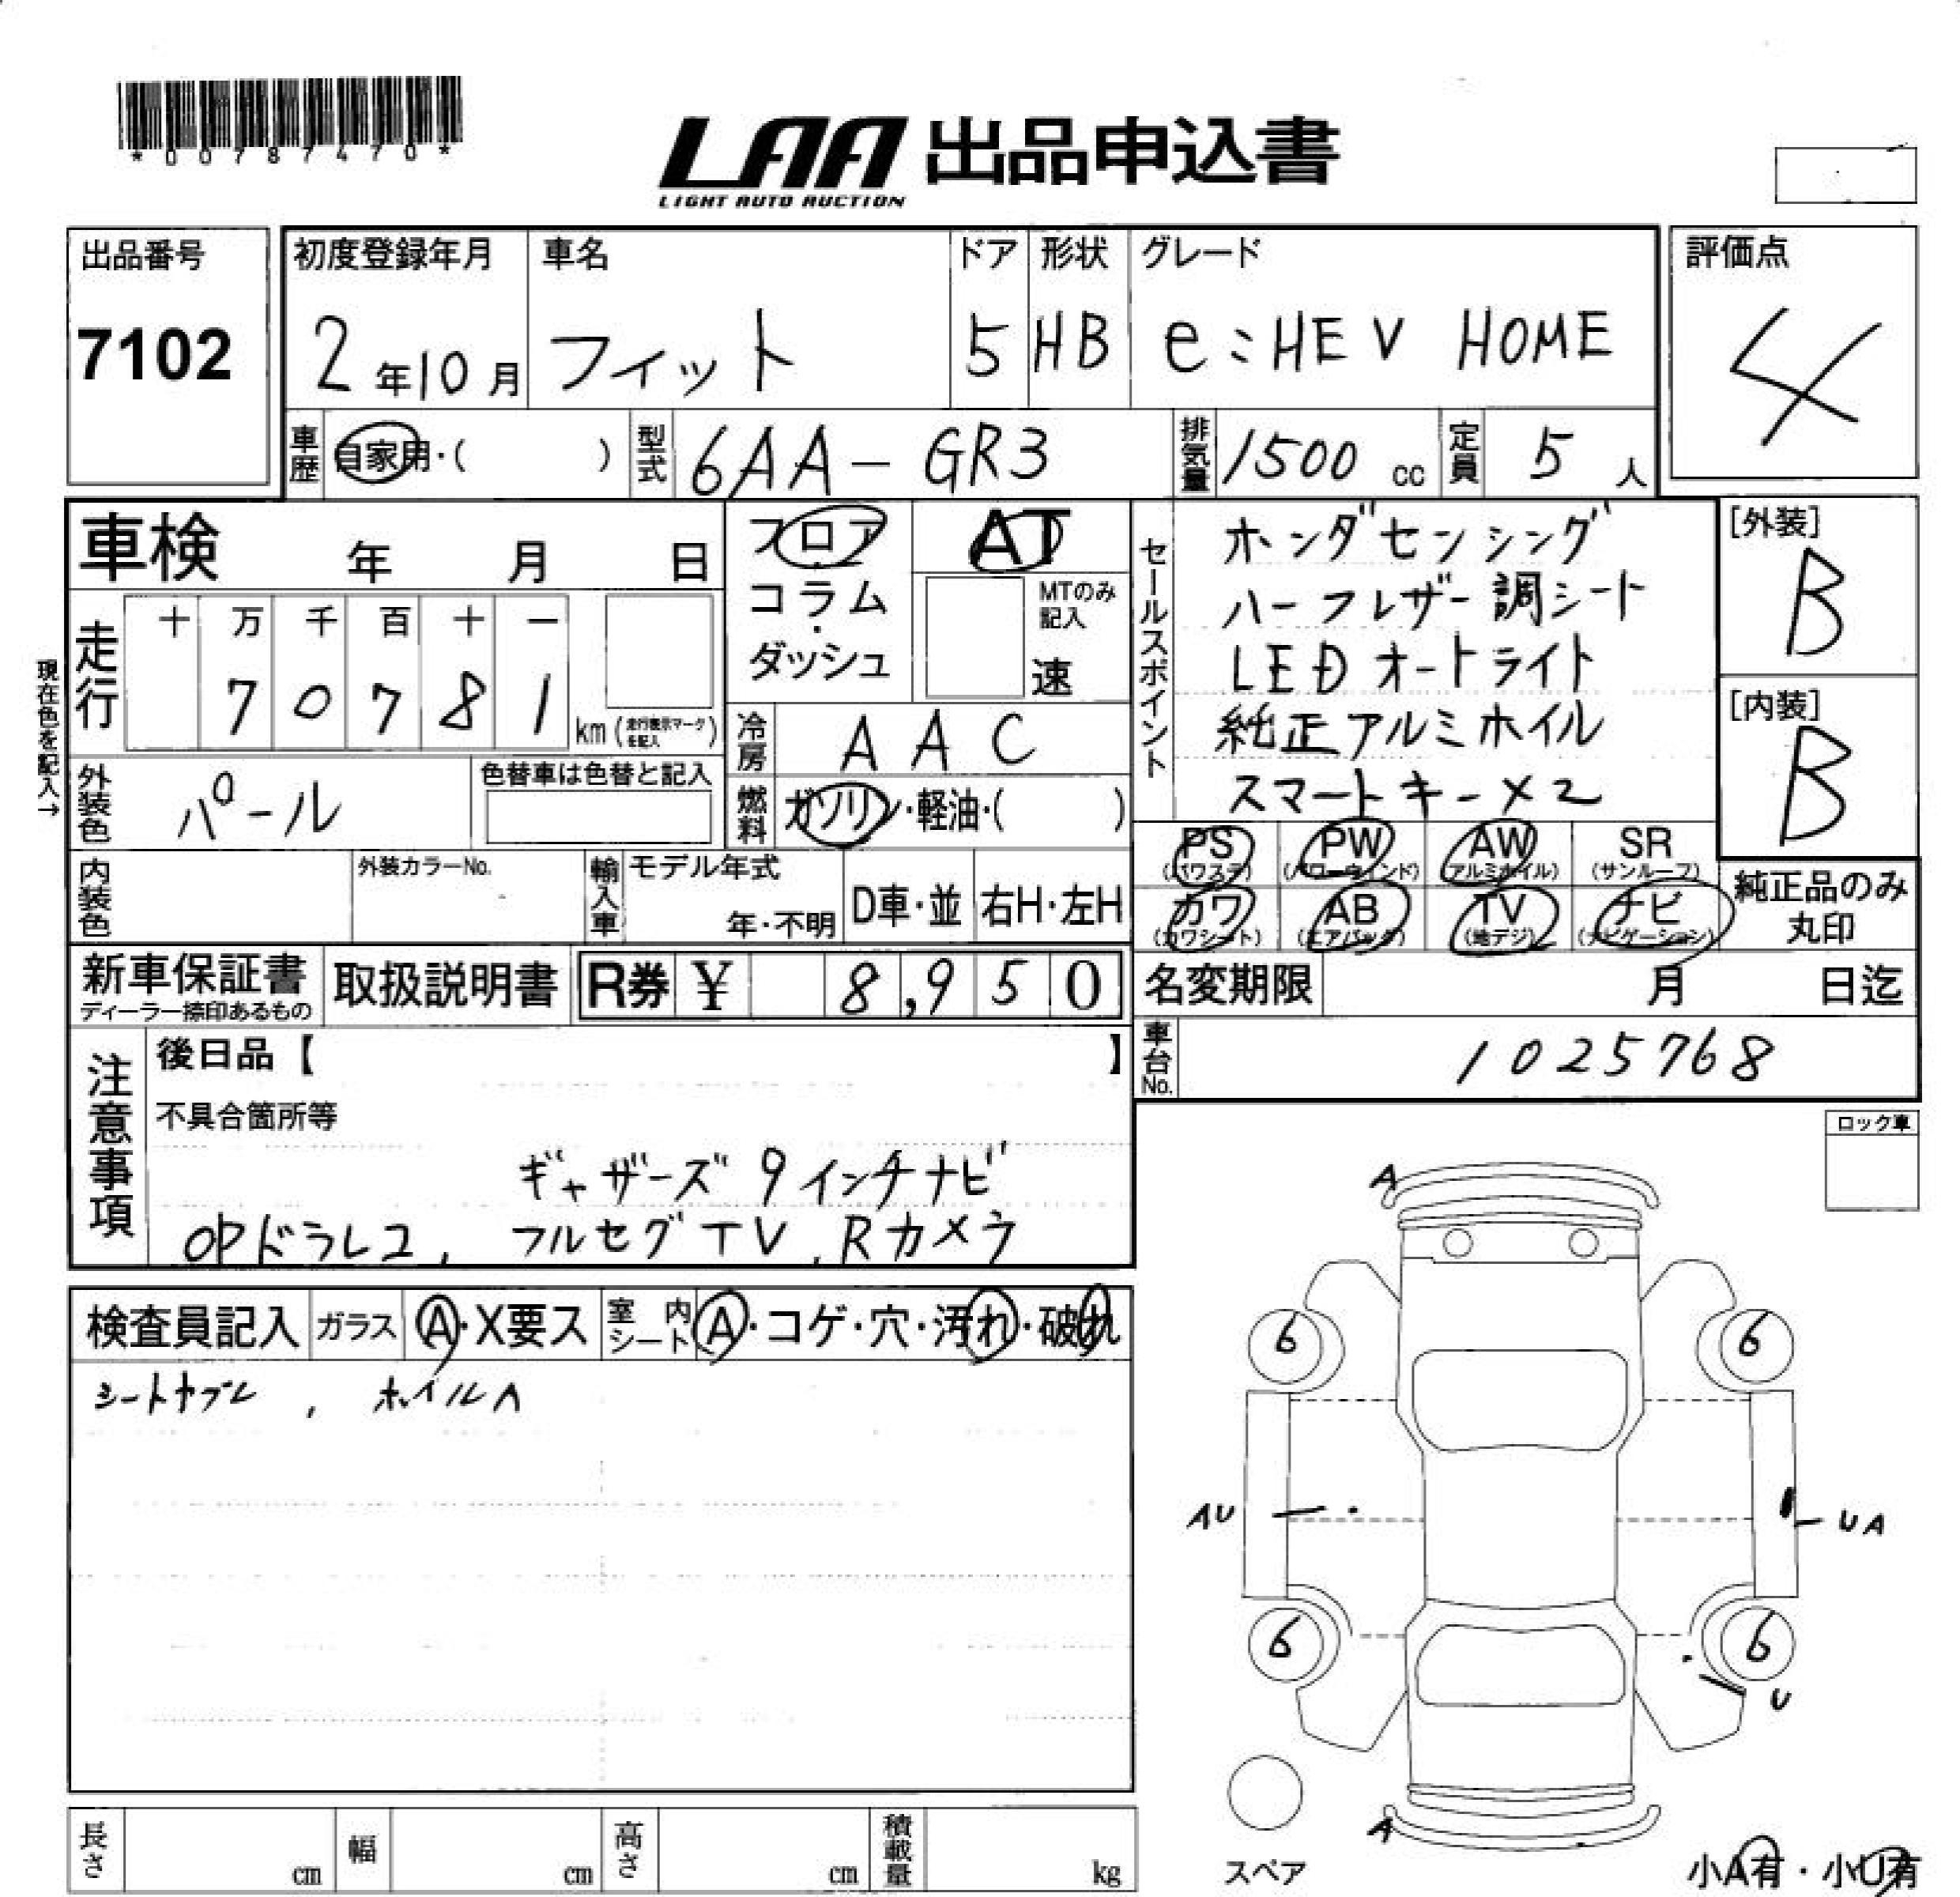 *00787470*
LAA 出品申込書
LIGHT AUTO AUCTION
出品番号
7102
初度登録年月 車名 ドア 形状 グレード
2年10月 フィット 5 HB e:HEV HOME
評価点
4
車歴 自家用・( ) 型式 6AA-GR3 排気量 1500 cc 定員 5 人
車検 年 月 日
フロア AT
コラム・ダッシュ
MTのみ記入
速
走行 十 万 千 百 十 一
7 0 7 8 1 km (走行表示マークを記入)
現在色を記入→
冷房 AAC
外装色 パール 色替車は色替と記入
燃料 ガソリン・軽油・( )
セールスポイント
ホンダセンシング
ハーフレザー調シート
LEDオートライト
純正アルミホイル
スマートキー×2
[外装]
B
[内装]
B
内装色 外装カラーNo. 輸入車 モデル年式
年・不明 D車・並 右H・左H
PS (パワステ) PW (パワーウインド) AW (アルミホイル) SR (サンルーフ)
カワ (カワシート) AB (エアバック) TV (地デジ) ナビ (ナビゲーション)
純正品のみ丸印
新車保証書
ディーラー捺印あるもの
取扱説明書 R券 ¥ 8,950
名変期限 月 日迄
車台No. 1025768
注意事項
後日品【 】
不具合箇所等
ギャザーズ 9インチナビ
OPドラレコ, フルセグTV, Rカメラ
ロック車
検査員記入 ガラス A・X要ス 室内シート A・コゲ・穴・汚れ・破れ
シートヤブレ, ホイルA
A
6 6
AU UA
6 6
U
A
スペア
小A有・小U有
長さ cm 幅 cm 高さ cm 積載量 kg